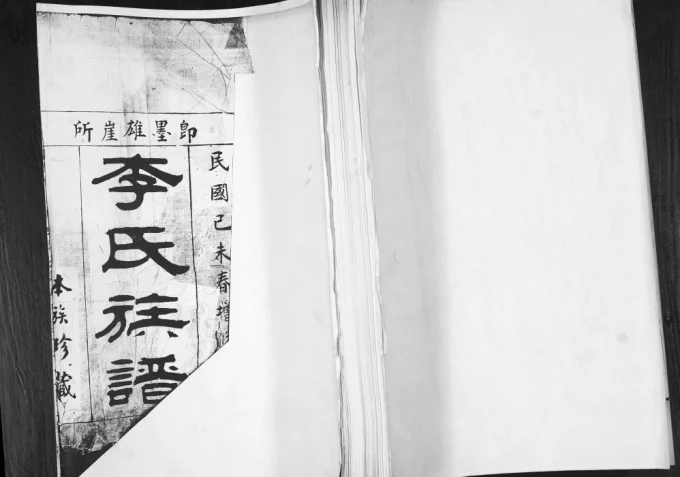 即墨雄崖所
民國己未春增修
李氏族譜
本族珍藏